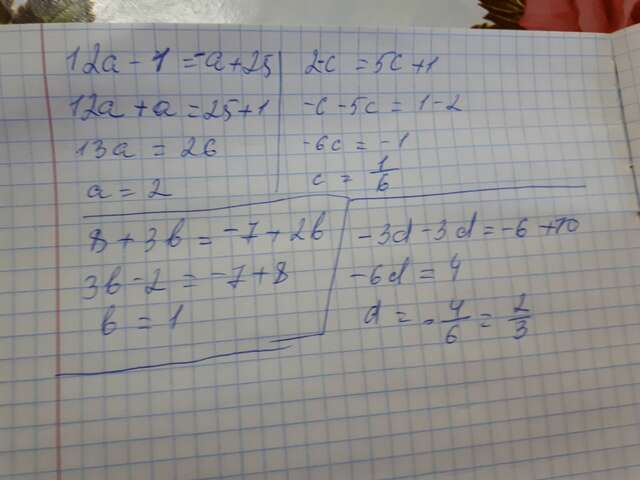 12a - 1 = -a + 25
12a + a = 25 + 1
13a = 26
a = 2
2-c = 5c + 1
-c - 5c = 1 - 2
-6c = -1
c = 1/6
8 + 3b = -7 + 2b
3b - 2 = -7 + 8
b = 1
-3d - 3d = -6 + 10
-6d = 4
d = -4/6 = 2/3